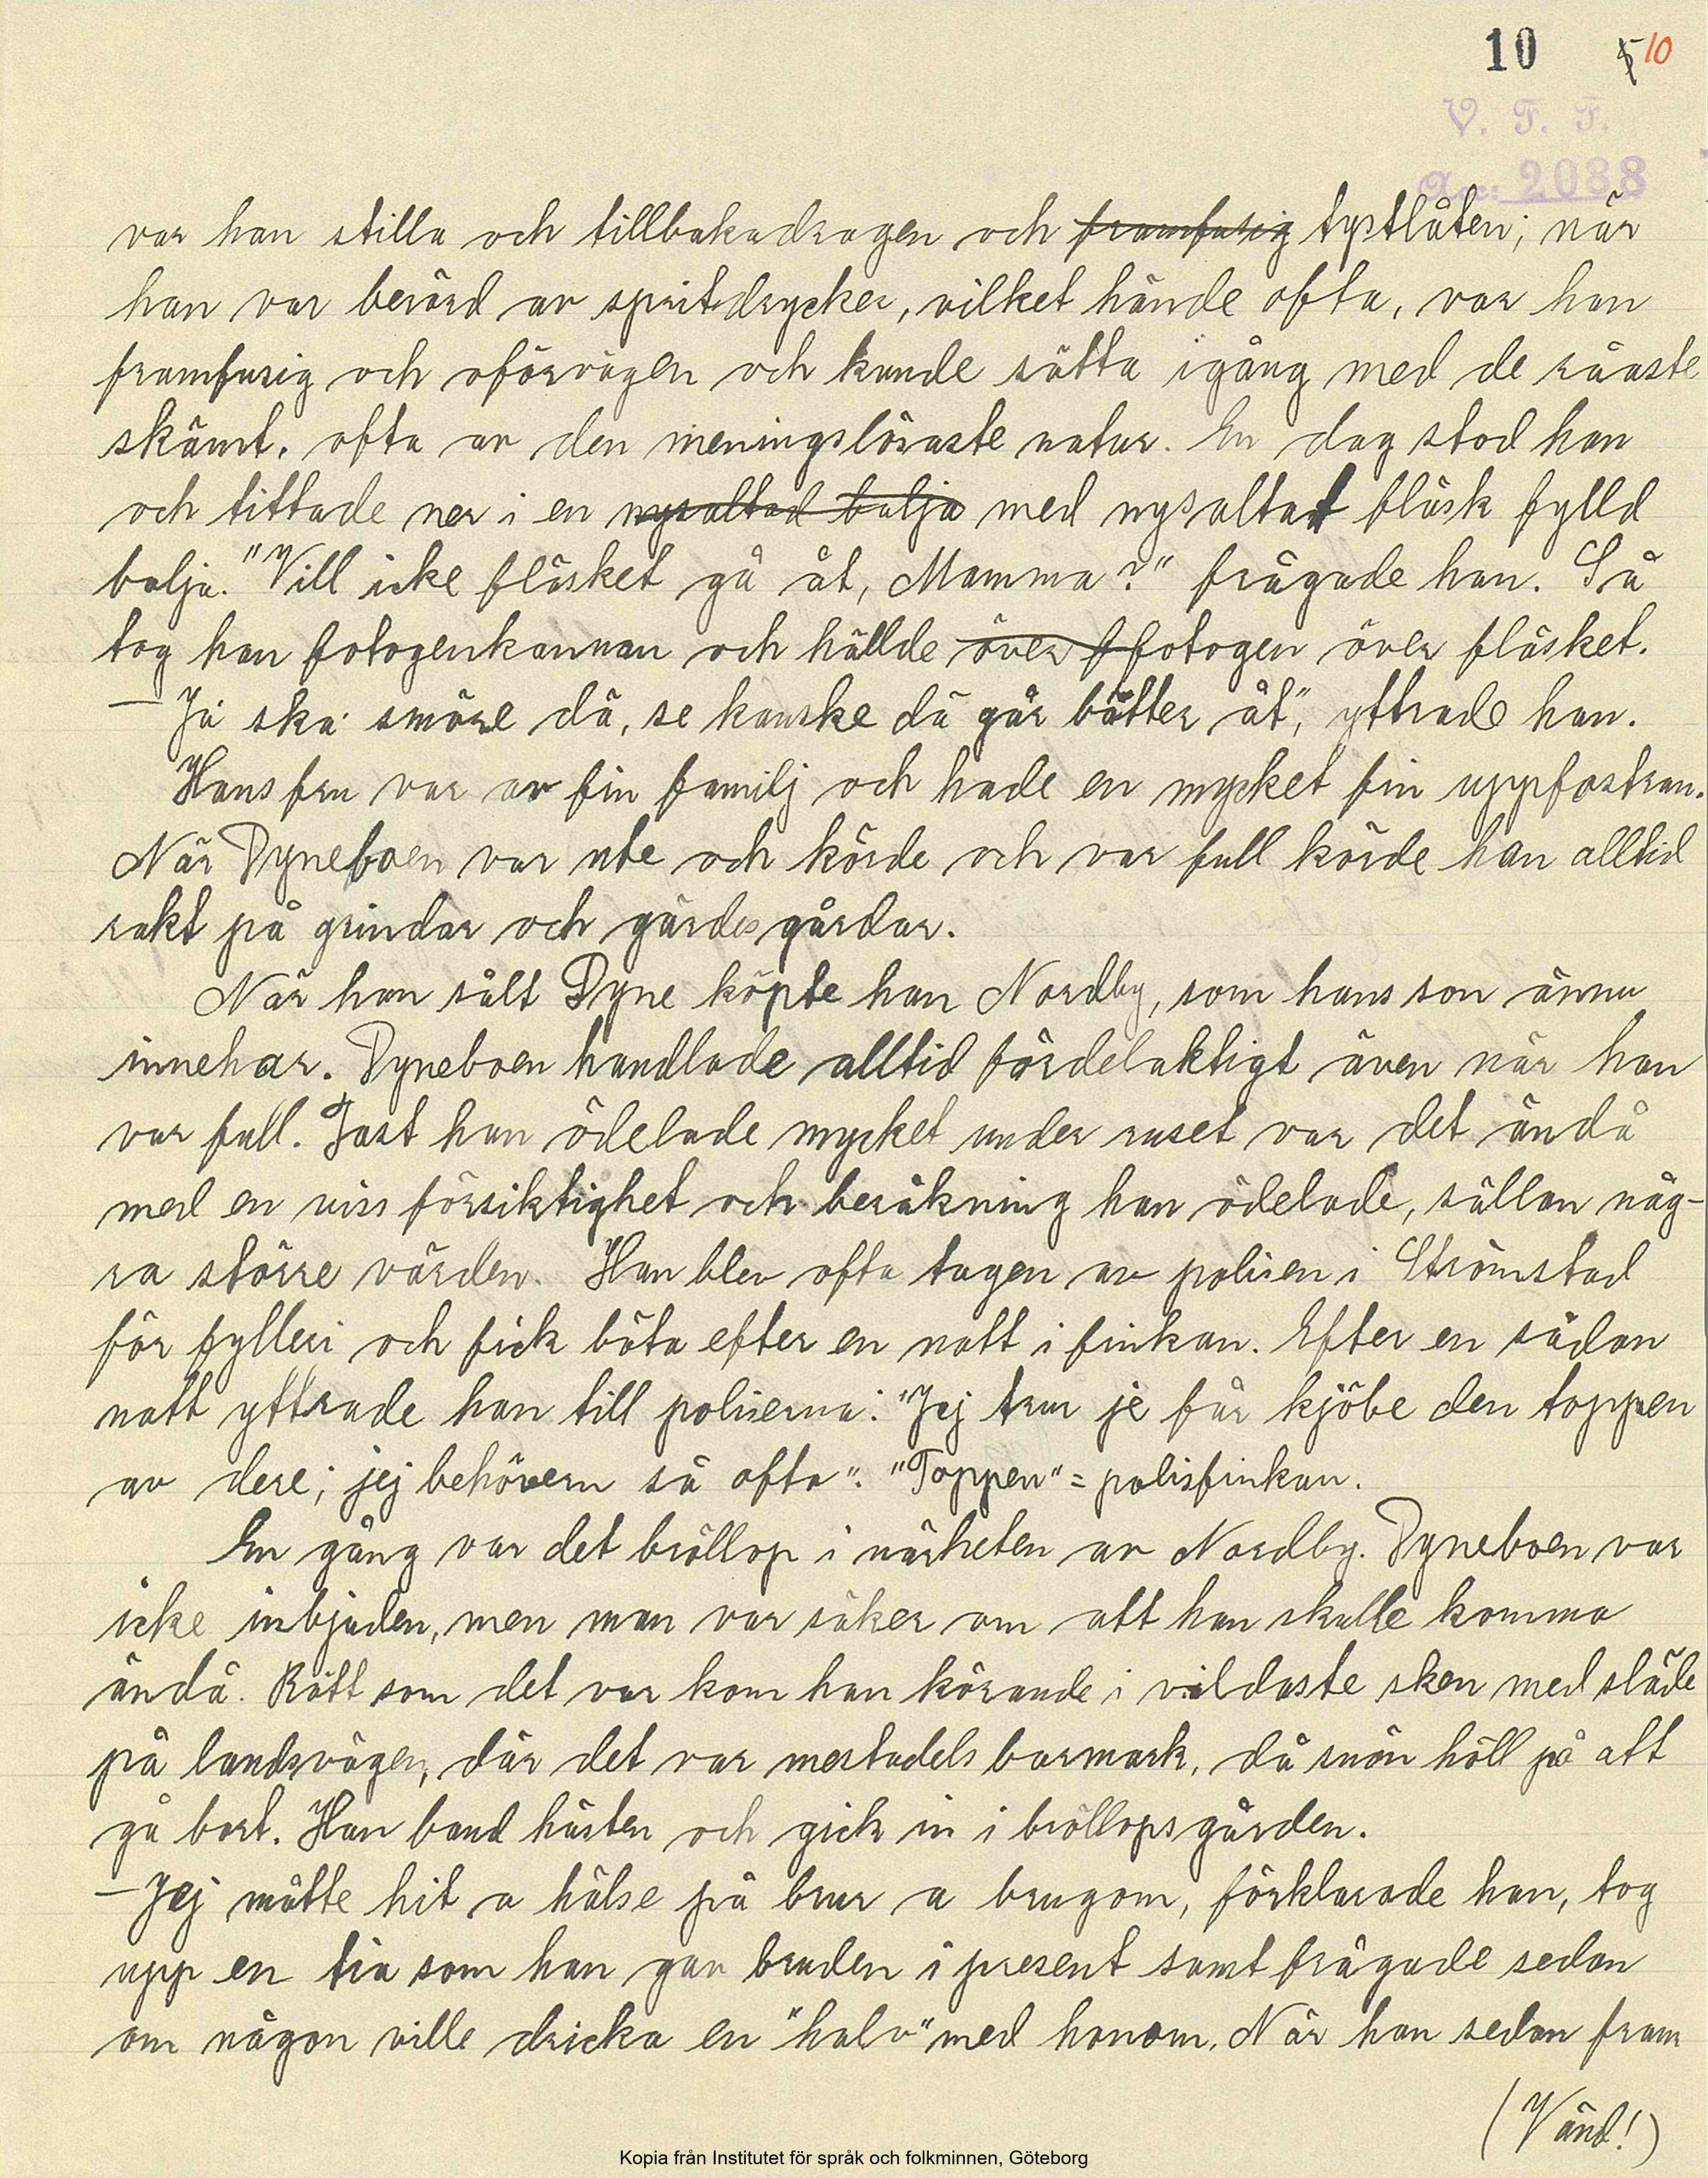 10 5 10
V. F. F.
Acc: 2088
var han stilla och tillbakadragen och framfusig tystlåten; när
han var berörd av spritdrycker, vilket hände ofta, var han
framfusig och oförvägen och kunde sätta igång med de råaste
skämt, ofta av den meningslösaste natur. En dag stod han
och tittade ner i en nysaltad balja med nysaltat fläsk fylld
balja. "Vill icke fläsket gå åt, Mamma?" frågade han. Så
tog han fotogenkannan och hällde över f fotogen över fläsket.
– Ja ska smöre då, se kanske då går bätter åt", yttrade han.
Hans fru var av fin familj och hade en mycket fin uppfostran.
När Dyneboen var ute och körde och var full körde han alltid
rakt på grindar och gärdesgårdar.
När han sålt Dyne köpte han Nordby, som hans son ännu
innehar. Dyneboen handlade alltid fördelaktigt även när han
var full. Fast han ödelade mycket under ruset var det ändå
med en viss försiktighet och beräkning han ödelade, sällan någ-
ra större värden. Han blev ofta tagen av polisen i Strömstad
för fylleri och fick böta efter en natt i finkan. Efter en sådan
natt yttrade han till poliserna: "Jej trur je får kjöbe den toppen
av dere; jej behövern så ofta". "Toppen" = polisfinkan.
En gång var det bröllop i närheten av Nordby. Dyneboen var
icke inbjuden, men man var säker om att han skulle komma
ändå. Rätt som det var kom han körande i vildaste sken med släde
på landsvägen, där det var mestadels barmark, då snön höll på att
gå bort. Han band hästen och gick in i bröllopsgården.
– Jej måtte hit a hälse på brur a brugom, förklarade han, tog
upp en tia som han gav bruden i present samt frågade sedan
om någon ville dricka en "halv" med honom. När han sedan fram
(Vänd!)
Kopia från Institutet för språk och folkminnen, Göteborg